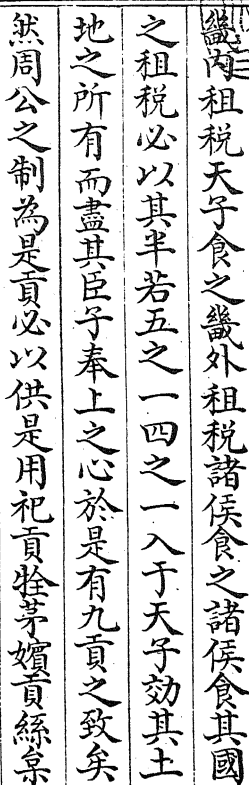 畿内租税天子食之畿外租税諸侯食之諸侯食其國
之租税必以其半若五之一四之一入于天子効其土
地之所有而盡其臣子奉上之心於是有九貢之致矣
然周公之制為是貢必以供是用祀貢牲茅嬪貢絲枲